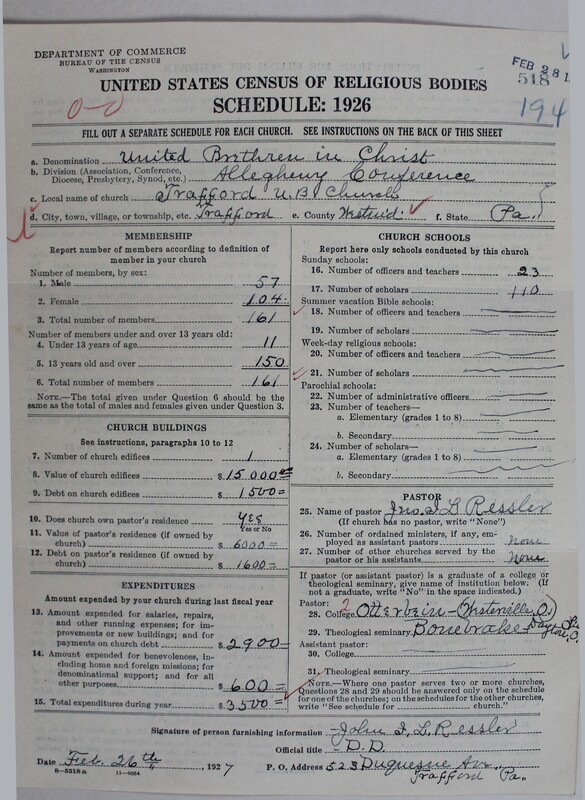 DEPARTMENT OF COMMERCE
BUREAU OF THE CENSUS
WASHINGTON
FEB 28
518
194
0-0
UNITED STATES CENSUS OF RELIGIOUS BODIES
SCHEDULE: 1926
FILL OUT A SEPARATE SCHEDULE FOR EACH CHURCH. SEE INSTRUCTIONS ON THE BACK OF THIS SHEET
a. Denomination United Brethren in Christ
b. Division (Association, Conference, Diocese, Presbytery, Synod, etc.) Allegheny Conference
c. Local name of church Trafford U.B. Church
d. City, town, village, or township, etc. Trafford e. County Westm'd. f. State Pa.
MEMBERSHIP
Report number of members according to definition of member in your church
Number of members, by sex:
1. Male 57
2. Female 104
3. Total number of members 161
Number of members under and over 13 years old:
4. Under 13 years of age 11
5. 13 years old and over 150
6. Total number of members 161
NOTE.—The total given under Question 6 should be the same as the total of males and females given under Question 3.
CHURCH BUILDINGS
See instructions, paragraphs 10 to 12
7. Number of church edifices 1
8. Value of church edifices $ 15000
9. Debt on church edifices $ 1500=
10. Does church own pastor's residence yes
Yes or No
11. Value of pastor's residence (if owned by church) $ 6000=
12. Debt on pastor's residence (if owned by church) $ 1600=
EXPENDITURES
Amount expended by your church during last fiscal year
13. Amount expended for salaries, repairs, and other running expenses; for improvements or new buildings; and for payments on church debt $ 2900=
14. Amount expended for benevolences, including home and foreign missions; for denominational support; and for all other purposes $ 600=
15. Total expenditures during year $ 3500=
CHURCH SCHOOLS
Report here only schools conducted by this church
Sunday schools:
16. Number of officers and teachers 23
17. Number of scholars 110
Summer vacation Bible schools:
18. Number of officers and teachers
19. Number of scholars
Week-day religious schools:
20. Number of officers and teachers
21. Number of scholars
Parochial schools:
22. Number of administrative officers
23. Number of teachers—
a. Elementary (grades 1 to 8)
b. Secondary
24. Number of scholars—
a. Elementary (grades 1 to 8)
b. Secondary
PASTOR
25. Name of pastor Jno. I L Ressler
(If church has no pastor, write "None")
26. Number of ordained ministers, if any, employed as assistant pastors None
27. Number of other churches served by the pastor or his assistants None
If pastor (or assistant pastor) is a graduate of a college or theological seminary, give name of institution below. (If not a graduate, write "No" in the space indicated.)
Pastor:
28. College Otterbein - Westerville, O.
29. Theological seminary Bonebrake Dayton, O.
Assistant pastor:
30. College
31. Theological seminary
NOTE.—Where one pastor serves two or more churches, Questions 28 and 29 should be answered only on the schedule for one of the churches; on the schedules for the other churches, write "See schedule for church."
Signature of person furnishing information John I. L. Ressler
Official title D.D.
Date Feb. 26th, 1927 P. O. Address 523 Duquesne Ave.
Trafford Pa.
8-5518a